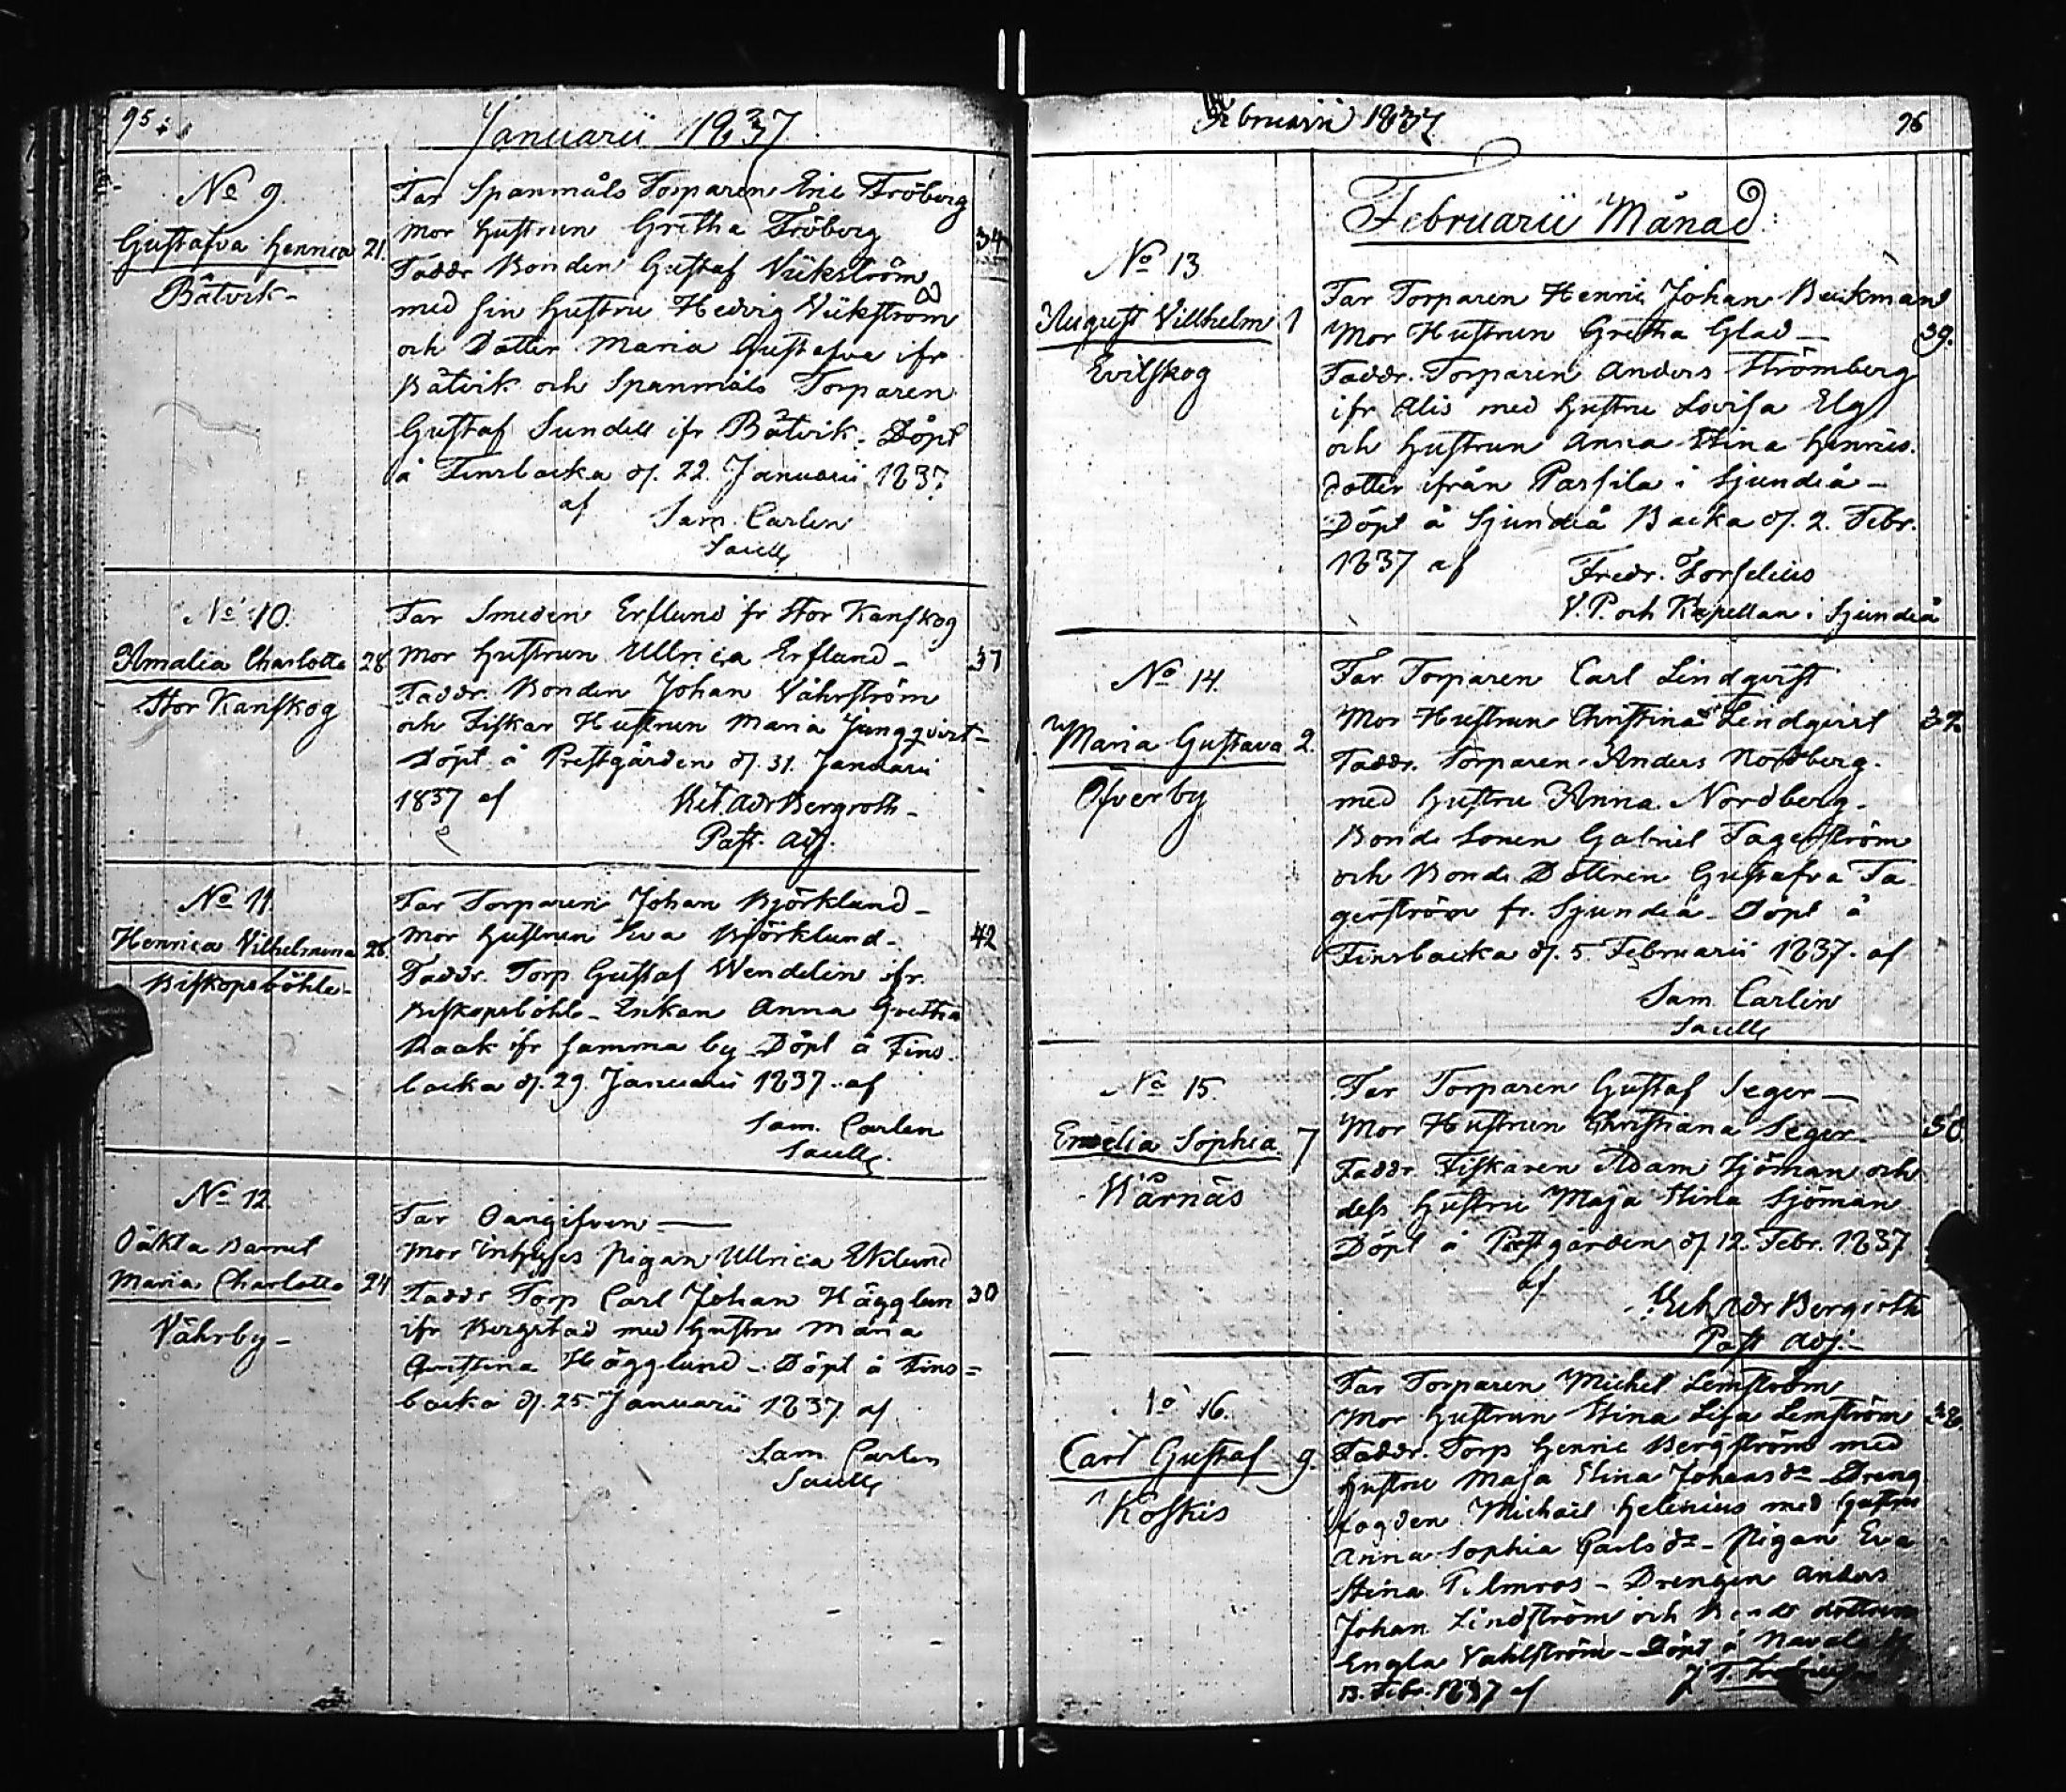 95
Januarii 1837
No 9.
Gustafva Henrica 21.
Båtvik
Far Spanmåls Torparen Eric Fröberg
Mor Hustrun Gretha Fröberg 34
Faddr Bonden Gustaf Vickström
med sin Hustru Hedvig Vickström
och Dotter Maria Gustafva ifr
Båtvik och Spanmåls Torparen
Gustaf Sundell ifr Båtvik. Döpt
å Finsbacka d. 22. Januarii 1837
af Sam. Carlen
Sacell
No 10.
Amalia Charlotta 28
Stor Kanskog
Far Smeden Erflund fr Stor Kanskog
Mor Hustrun Ullrica Erflund 37
Faddr. Bonden Johan Våhrström
och Fiskar Hustrun Maria Jungqvist
Döpt å Prestgården d. 31. Januarii
1837 af Bergroth
Past. Adj.
No 11.
Henrica Vilhelmina 26
Biskopsböhle
Far Torparen Johan Björklund
Mor Hustrun Eva Björklund 42
Faddr. Torp Gustaf Wendelin ifr.
Biskopsböhle Enkan Anna Gretha
Haak ifr samma by Döpt å Fins
backa d. 29. Januarii 1837. af
Sam. Carlen
Sacell
No 12.
Oäkta Barnet
Maria Charlotta 24
Våhrby
Far Oangifven
Mor Inhyses Pigan Ullrica Eklund
Faddr Torp Carl Johan Hägglun 30
ifr Bergstad med Hustru Maria
Christina Hägglund - Döpt å Fins=
backa d. 25. Januarii 1837 af
Sam. Carlen
Sacell
Februarii 1837
96
Februarii Månad
No 13
August Villhelm 1
Evilskog
Far Torparen Henric Johan Beckman
Mor Hustrun Gretha Glad 39.
Faddr. Torparen Anders Strömberg
ifr Alis med Hustru Lovisa Elg
och Hustrun Anna Stina Henrics
dotter ifrån Parsila i Sjundeå
Döpt å Sjundeå Backa d. 2. Febr.
1837 af Fredr. Forselius
V.P. och Kapellan i Sjundeå
No 14.
Maria Gustava 2.
Öfverby
Far Torparen Carl Lindqvist
Mor Hustrun Christina Lindqvist 32
Faddr. Torparen Anders Nordberg
med Hustru Anna Nordberg
Bonde Sonen Gabriel Tagerström
och Bonde Dottren Gustafva Ta
gerström fr. Sjundeå Döpt å
Finsbacka d. 5. Februarii 1837. af
Sam Carlen
Sacell
No 15.
Emelia Sophia 7
Wårnäs
Far Torparen Gustaf Seger
Mor Hustrun Christiana Seger 30
Faddr Fiskaren Adam Sjöman och
dess Hustru Maja Stina Sjöman
Döpt å Prestgården d. 12. Febr. 1837
af
Bergroth
Past Adj.
No 16.
Carl Gustaf 9.
Koskis
Far Torparen Michel Lemström
Mor Hustrun Stina Lisa Lemström 32.
Faddr. Torp Henric Bergström med
Hustru Maja Stina Johansdr Dreng
fogden Michael Helenius med Hustru
Anna Sophia Carlsdr Pigan Eva
Stina Tilmros - Drengen Anders
Johan Lindström och Bonde dottren
Engla Vahlström - Döpt å Navala
13. Febr. 1837 af